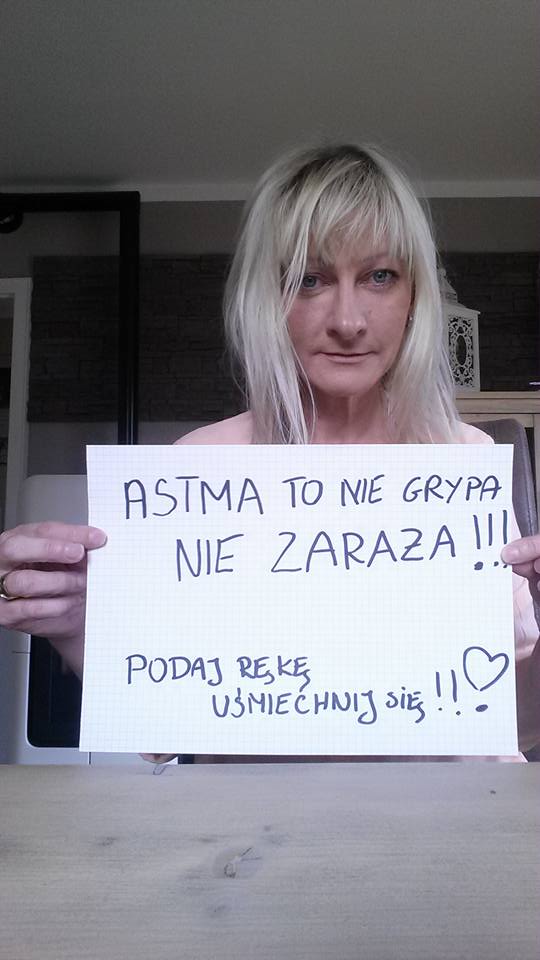 ASTMA TO NIE GRYPA
NIE ZARAŻA !!!
PODAJ RĘKĘ
UŚMIECHNIJ SIĘ !!